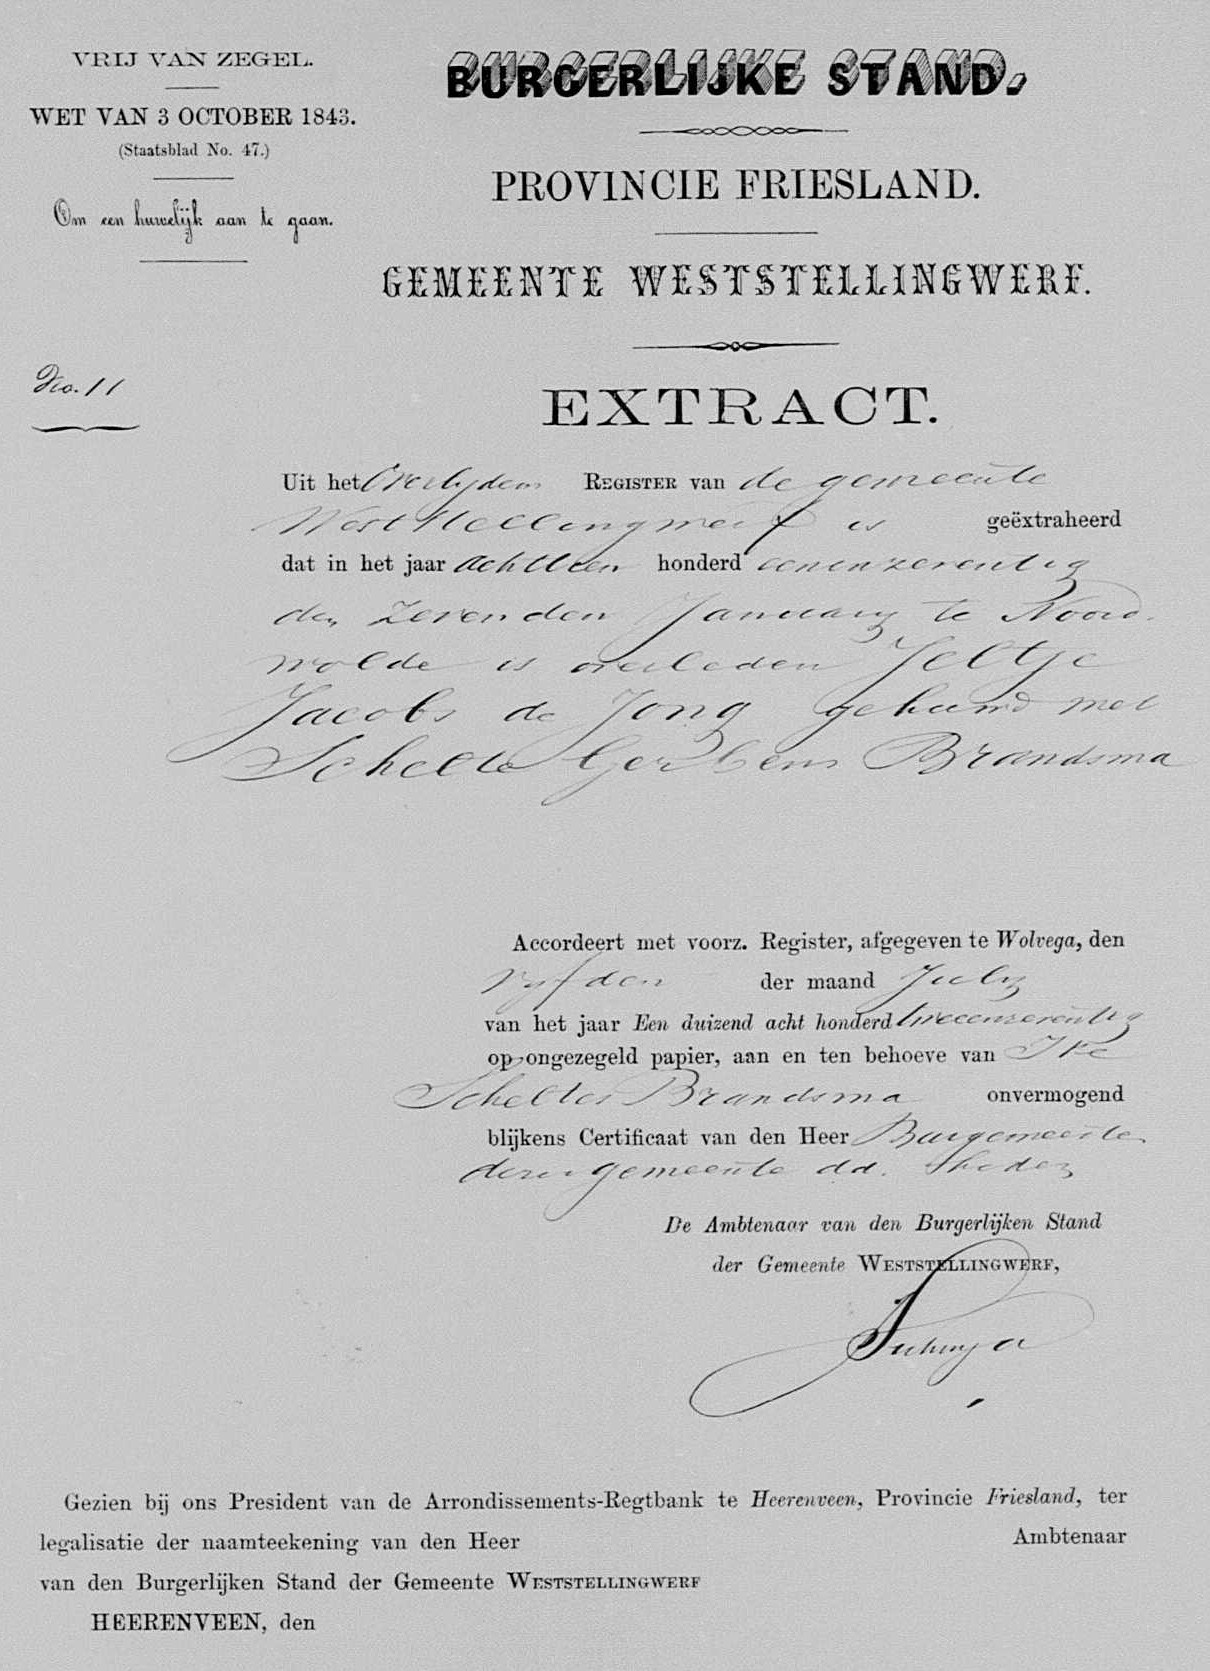 VRIJ VAN ZEGEL.
WET VAN 3 OCTOBER 1843.
(Staatsblad No. 47.)
Om een huwelijk aan te gaan.
No. 11
BURGERLIJKE STAND.
PROVINCIE FRIESLAND.
GEMEENTE WESTSTELLINGWERF.
EXTRACT.
Uit het Overlijdens REGISTER van de gemeente
Weststellingwerf is geëxtraheerd
dat in het jaar achttien honderd eenenzeventig
den zevenden January te Noord-
wolde is overleden Jeltje
Jacobs de Jong gehuwd met
Schelte Gerbens Brandsma
Accordeert met voorz. Register, afgegeven te Wolvega, den
vyfden der maand July
van het jaar Een duizend acht honderd tweeenzeventig
op ongezegeld papier, aan en ten behoeve van Ike
Scheltes Brandsma onvermogend
blijkens Certificaat van den Heer Burgemeester
dezer gemeente dd. heden
De Ambtenaar van den Burgerlijken Stand
der Gemeente WESTSTELLINGWERF,
Gezien bij ons President van de Arrondissements-Regtbank te Heerenveen, Provincie Friesland, ter
legalisatie der naamteekening van den Heer Ambtenaar
van den Burgerlijken Stand der Gemeente WESTSTELLINGWERF
HEERENVEEN, den